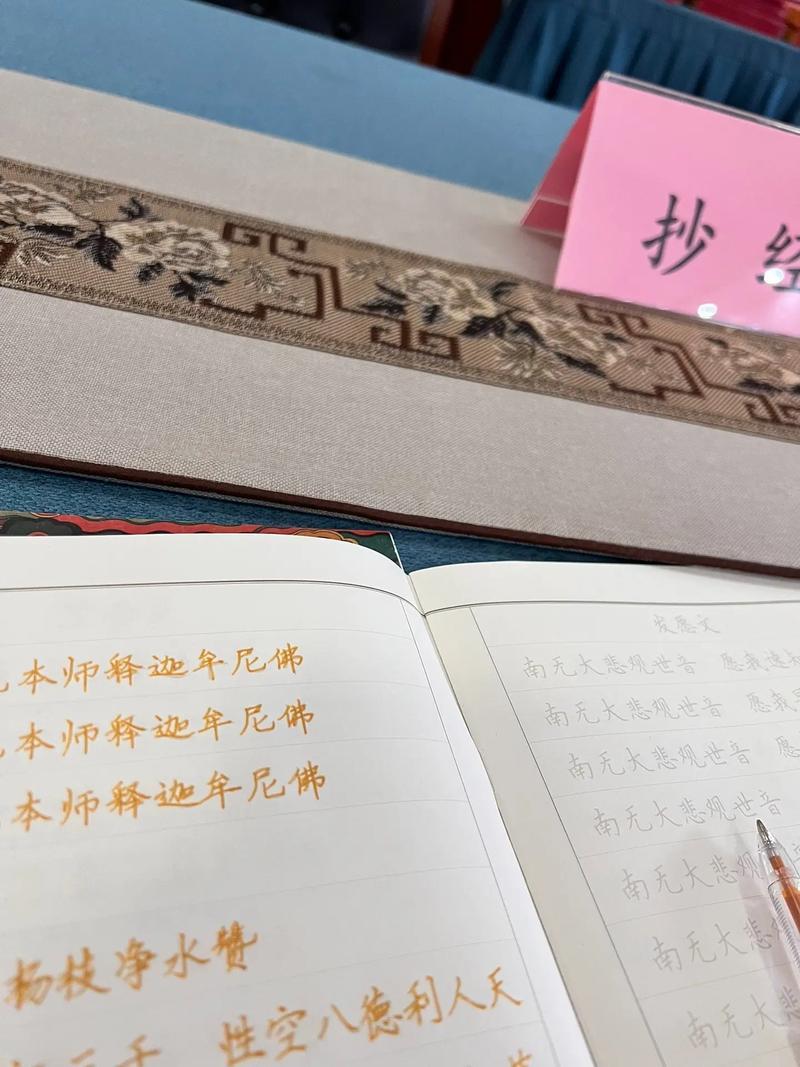 抄 经
本师释迦牟尼佛
本师释迦牟尼佛
本师释迦牟尼佛
杨枝净水赞
三千 性空八德利人天
发愿文
南无大悲观世音 愿我速知
南无大悲观世音 愿我
南无大悲观世音 愿
南无大悲观世音
南无大悲观
南无大悲
南无大悲